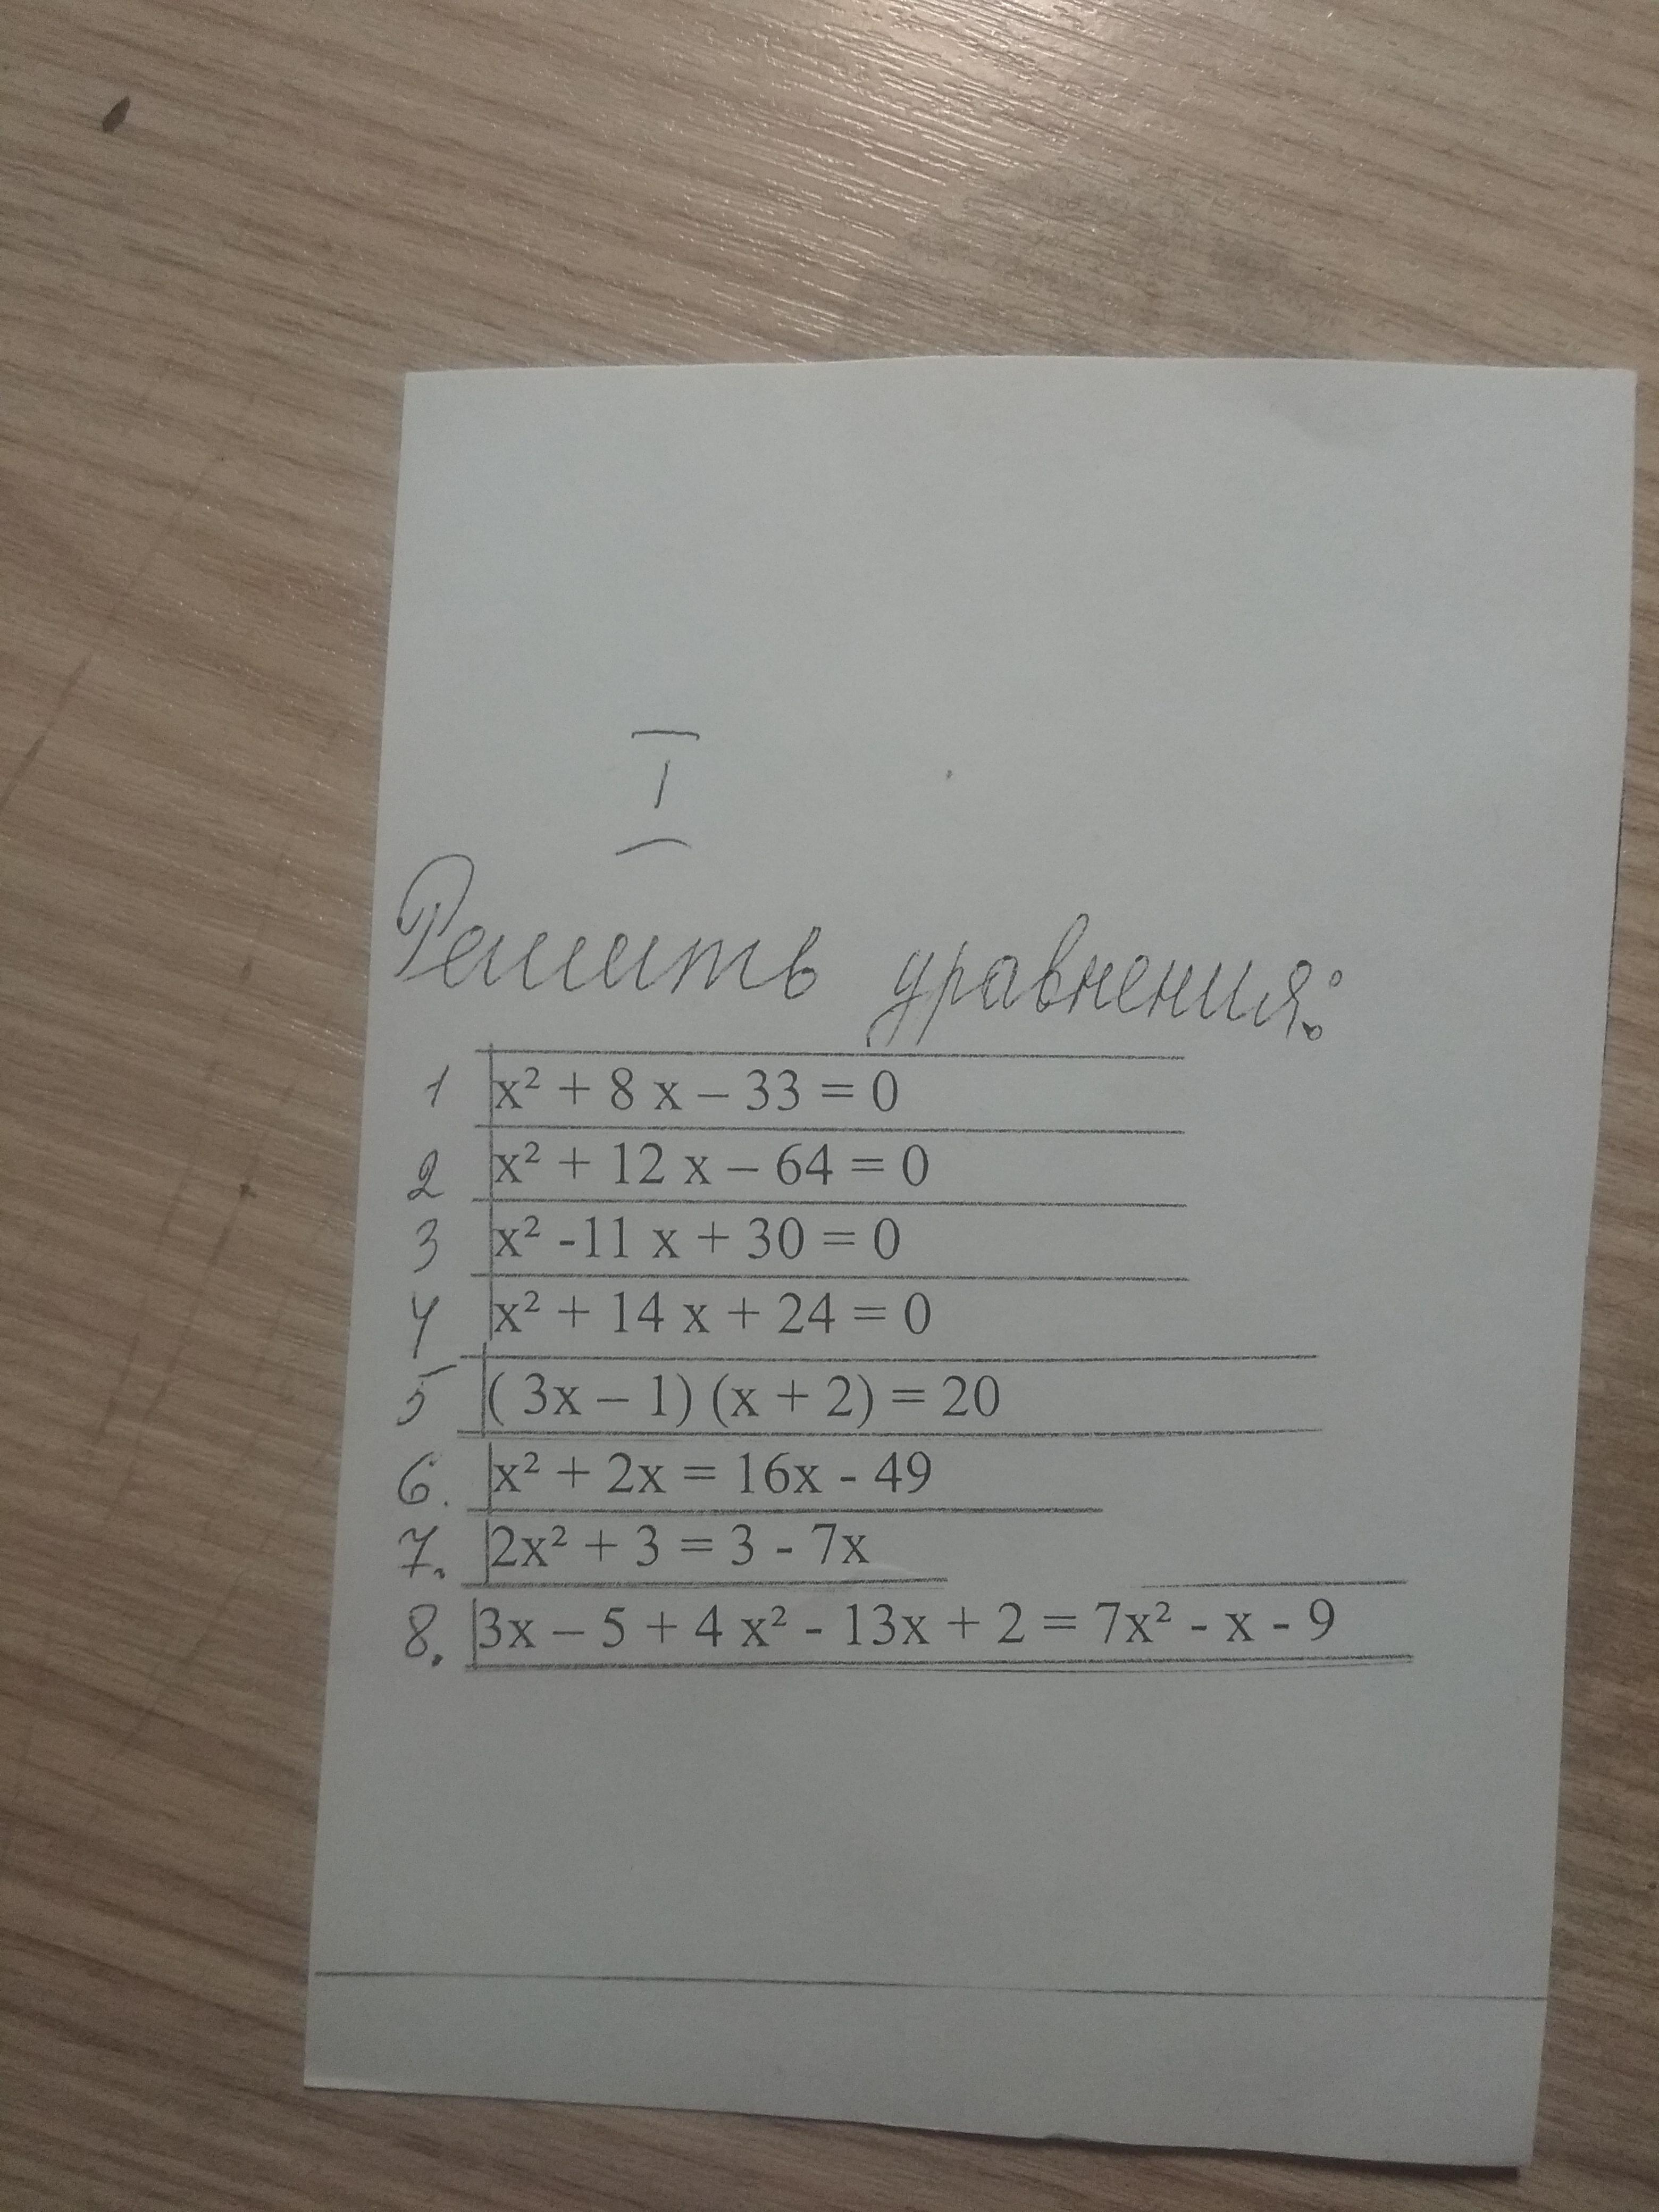 I
Решить уравнения:
1 x² + 8 x – 33 = 0
2 x² + 12 x – 64 = 0
3 x² -11 x + 30 = 0
4 x² + 14 x + 24 = 0
5 ( 3x – 1) (x + 2) = 20
6. x² + 2x = 16x - 49
7. 2x² + 3 = 3 - 7x
8. 3x – 5 + 4 x² - 13x + 2 = 7x² - x - 9